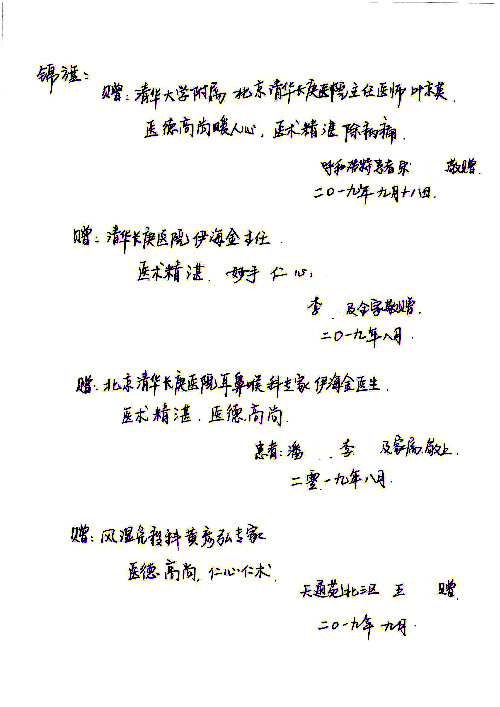 锦旗：
赠：清华大学附属北京清华长庚医院主任医师叶京英
医德高尚暖人心，医术精湛除病痛
呼和浩特患者宋 敬赠
二〇一九年九月十八日.
赠：清华长庚医院伊海金主任
医术精湛 妙手仁心；
李 及全家敬赠.
二〇一九年八月.
赠：北京清华长庚医院耳鼻喉科专家伊海金医生.
医术精湛.医德高尚.
患者：潘 李 及家属.敬上.
二零一九年八月.
赠：风湿免疫科黄彦弘专家
医德高尚，仁心仁术
天通苑北三区 王 赠
二〇一九年 九月.